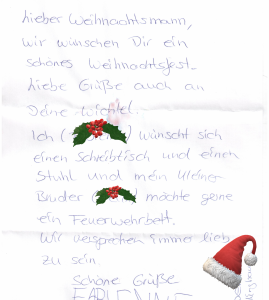 Lieber Weihnachtsmann,
wir wünschen Dir ein
schönes Weihnachtsfest.
Liebe Grüße auch an
Deine Wichtel.
Ich ( ) wünscht sich
einen Schreibtisch und einen
Stuhl und mein kleiner
Bruder ( ) möchte gerne
ein Feuerwehrbett.
Wir versprechen immer lieb
zu sein.
Schöne Grüße